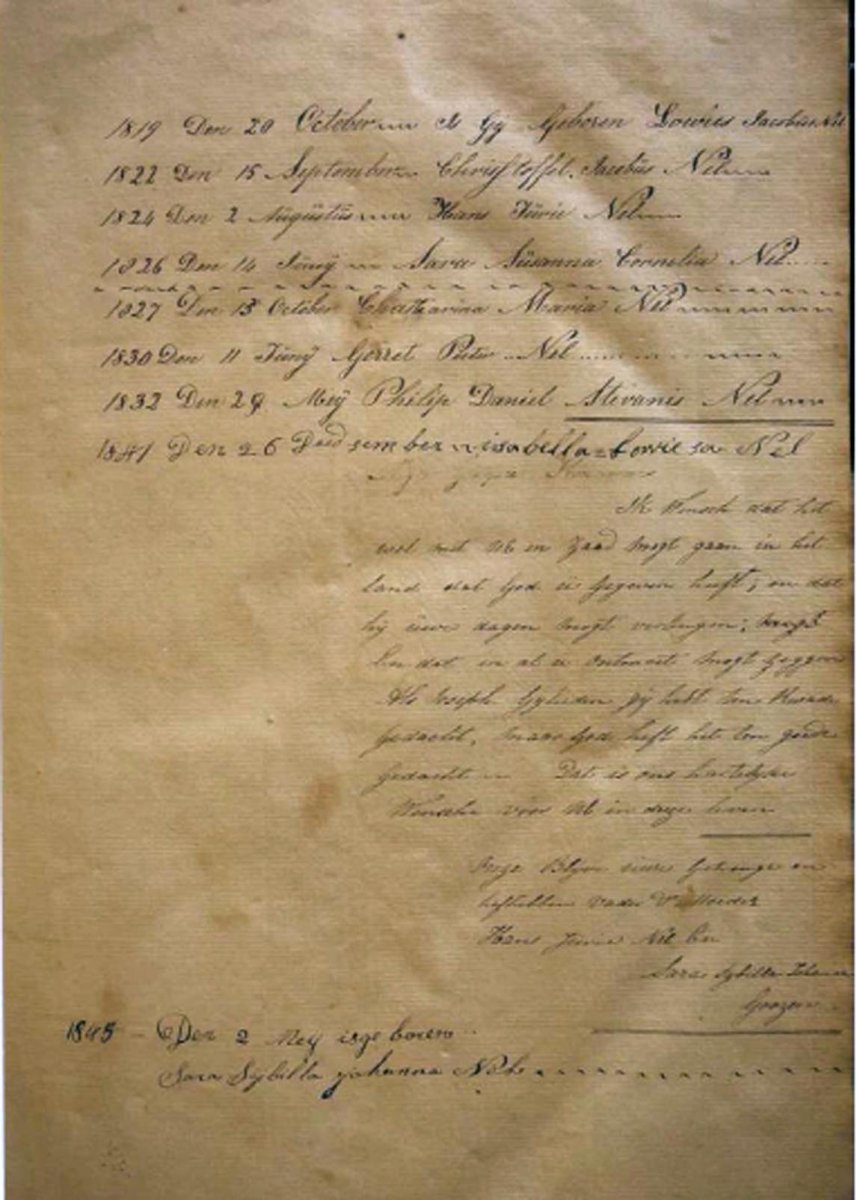 1819 Den 20 October is Gÿ Geboren Lowies Jacobus Nel
1822 Den 15 September Christoffel Jacobus Nel
1824 Den 2 Augüstüs Hans Jürie Nel
1826 Den 14 Junÿ Sara Süsanna Cornelia Nel
1827 Den 13 October Chatharina Maria Nel
1830 Den 11 Junÿ Gerret Pieter Nel
1832 Den 29 Meÿ Philip Daniel Stevanis Nel
1841 Den 26 Deed sem ber isabella = Lowie sa Nel
Ik Wensch dat het
wel met UE en Zaad mogt gaan in het
land dat God u gegeven heeft; en dat
hij üwe dagen mogt verlengen;
En dat in al u ontmoet mogt zeggen
Als Joseph Gylieden zij hebt ten kwade
gedacht, maar God heeft het ten goede
gedacht Dat is ons hartelyke
Wensch voor UE in deze leven
Blyve uwe Getrouwe en
liefhebben vader & Moeder
Hans Jurie Nel En
Sara Sybilla Johanna
1845 - Den 2 Mey isge boren
Sara Sybilla johanna Nel